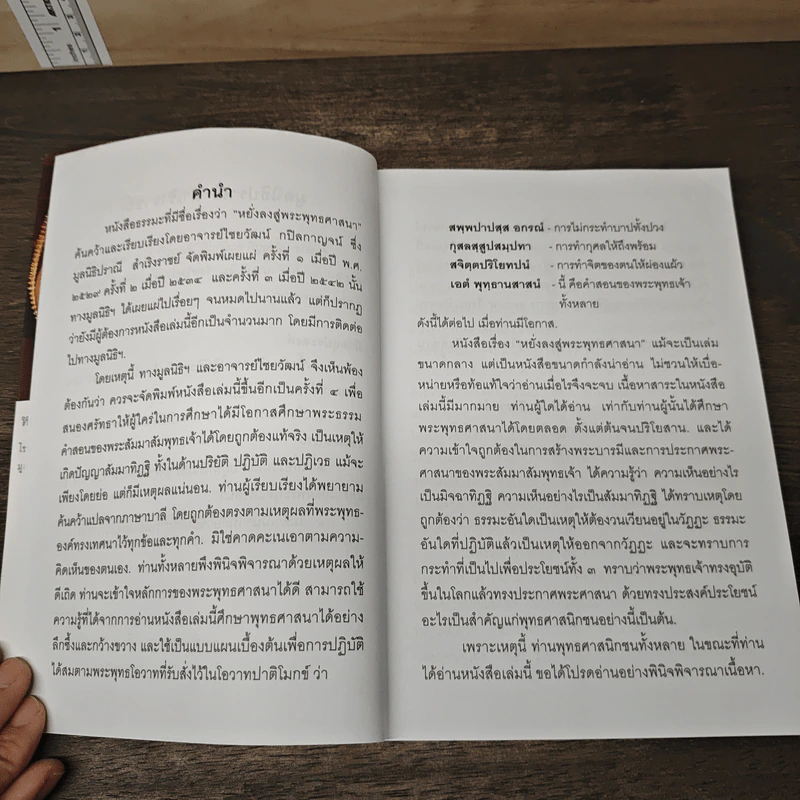 คำนำ
หนังสือธรรมะที่มีชื่อเรื่องว่า "หยั่งลงสู่พระพุทธศาสนา"
ค้นคว้าและเรียบเรียงโดยอาจารย์ไชยวัฒน์ กปิลกาญจน์ ซึ่ง
มูลนิธิปราณี สำเริงราชย์ จัดพิมพ์เผยแผ่ ครั้งที่ ๑ เมื่อปี พ.ศ.
๒๕๒๙ ครั้งที่ ๒ เมื่อปี ๒๕๓๔ และครั้งที่ ๓ เมื่อปี ๒๕๔๒ นั้น
ทางมูลนิธิฯ ได้เผยแผ่ไปเรื่อยๆ จนหมดไปนานแล้ว แต่ก็ปรากฏ
ว่ายังมีผู้ต้องการหนังสือเล่มนี้อีกเป็นจำนวนมาก โดยมีการติดต่อ
ไปทางมูลนิธิฯ.
โดยเหตุนี้ ทางมูลนิธิฯ และอาจารย์ไชยวัฒน์ จึงเห็นพ้อง
ต้องกันว่า ควรจะจัดพิมพ์หนังสือเล่มนี้ขึ้นอีกเป็นครั้งที่ ๔ เพื่อ
สนองศรัทธาให้ผู้ใคร่ในการศึกษาได้มีโอกาสศึกษาพระธรรม
คำสอนของพระสัมมาสัมพุทธเจ้าได้โดยถูกต้องแท้จริง เป็นเหตุให้
เกิดปัญญาสัมมาทิฏฐิ ทั้งในด้านปริยัติ ปฏิบัติ และปฏิเวธ แม้จะ
เพียงโดยย่อ แต่ก็มีเหตุผลแน่นอน. ท่านผู้เรียบเรียงได้พยายาม
ค้นคว้าแปลจากภาษาบาลี โดยถูกต้องตรงตามเหตุผลที่พระพุทธ-
องค์ทรงเทศนาไว้ทุกข้อและทุกคำ. มิใช่คาดคะเนเอาตามความ-
คิดเห็นของตนเอง. ท่านทั้งหลายพึงพินิจพิจารณาด้วยเหตุผลให้
ดีเถิด ท่านจะเข้าใจหลักการของพระพุทธศาสนาได้ดี สามารถใช้
ความรู้ที่ได้จากการอ่านหนังสือเล่มนี้ศึกษาพุทธศาสนาได้อย่าง
ลึกซึ้งและกว้างขวาง และใช้เป็นแบบแผนเบื้องต้นเพื่อการปฏิบัติ
ได้สมตามพระพุทธโอวาทที่รับสั่งไว้ในโอวาทปาติโมกข์ ว่า
สพฺพปาปสฺส อกรณํ - การไม่กระทำบาปทั้งปวง
กุสลสฺสูปสมฺปทา - การทำกุศลให้ถึงพร้อม
สจิตฺตปริโยทปนํ - การทำจิตของตนให้ผ่องแผ้ว
เอตํ พุทฺธานสาสนํ - นี้ คือคำสอนของพระพุทธเจ้า
ทั้งหลาย
ดังนี้ได้ต่อไป เมื่อท่านมีโอกาส.
หนังสือเรื่อง "หยั่งลงสู่พระพุทธศาสนา" แม้จะเป็นเล่ม
ขนาดกลาง แต่เป็นหนังสือขนาดกำลังน่าอ่าน ไม่ชวนให้เบื่อ-
หน่ายหรือท้อแท้ใจว่าอ่านเมื่อไรจึงจะจบ เนื้อหาสาระในหนังสือ
เล่มนี้มีมากมาย ท่านผู้ใดได้อ่าน เท่ากับท่านผู้นั้นได้ศึกษา
พระพุทธศาสนาได้โดยตลอด ตั้งแต่ต้นจนปริโยสาน. และได้
ความเข้าใจถูกต้องในการสร้างพระบารมีและการประกาศพระ-
ศาสนาของพระสัมมาสัมพุทธเจ้า ได้ความรู้ว่า ความเห็นอย่างไร
เป็นมิจฉาทิฏฐิ ความเห็นอย่างไรเป็นสัมมาทิฏฐิ ได้ทราบเหตุโดย
ถูกต้องว่า ธรรมะอันใดเป็นเหตุให้ต้องวนเวียนอยู่ในวัฏฏะ ธรรมะ
อันใดที่ปฏิบัติแล้วเป็นเหตุให้ออกจากวัฏฏะ และจะทราบการ
กระทำที่เป็นไปเพื่อประโยชน์ทั้ง ๓ ทราบว่าพระพุทธเจ้าทรงอุบัติ
ขึ้นในโลกแล้วทรงประกาศพระศาสนา ด้วยทรงประสงค์ประโยชน์
อะไรเป็นสำคัญแก่พุทธศาสนิกชนอย่างนี้เป็นต้น.
เพราะเหตุนี้ ท่านพุทธศาสนิกชนทั้งหลาย ในขณะที่ท่าน
ได้อ่านหนังสือเล่มนี้ ขอได้โปรดอ่านอย่างพินิจพิจารณาเนื้อหา.